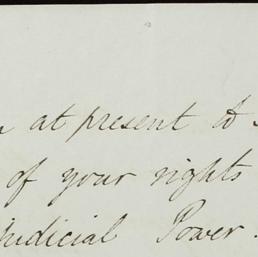 at present to
of your rights
Judicial Power.